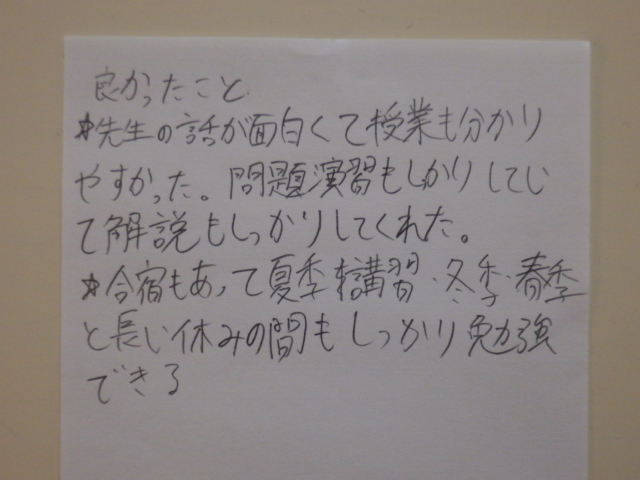 良かったこと
*先生の話が面白くて授業も分かり
やすかった。問題演習もしかりしてい
て解説もしっかりしてくれた。
*合宿もあって夏季講習・冬季・春季
と長い休みの間もしっかり勉強
できる